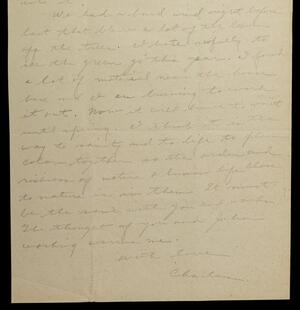 We had a hard wind night before
last that blew a lot of the leaves
off the trees. I hate awfully to
see the green go this year. I found
a lot of material near the house
here and I am burning to work
it out. Now it will have to wait
until spring. I think it is the
way to sanity and to life to
together so the
of nature & human life close
to nature is in them. It must
be the same with you and
The thought of you and
working warms me.
With love
Charles.